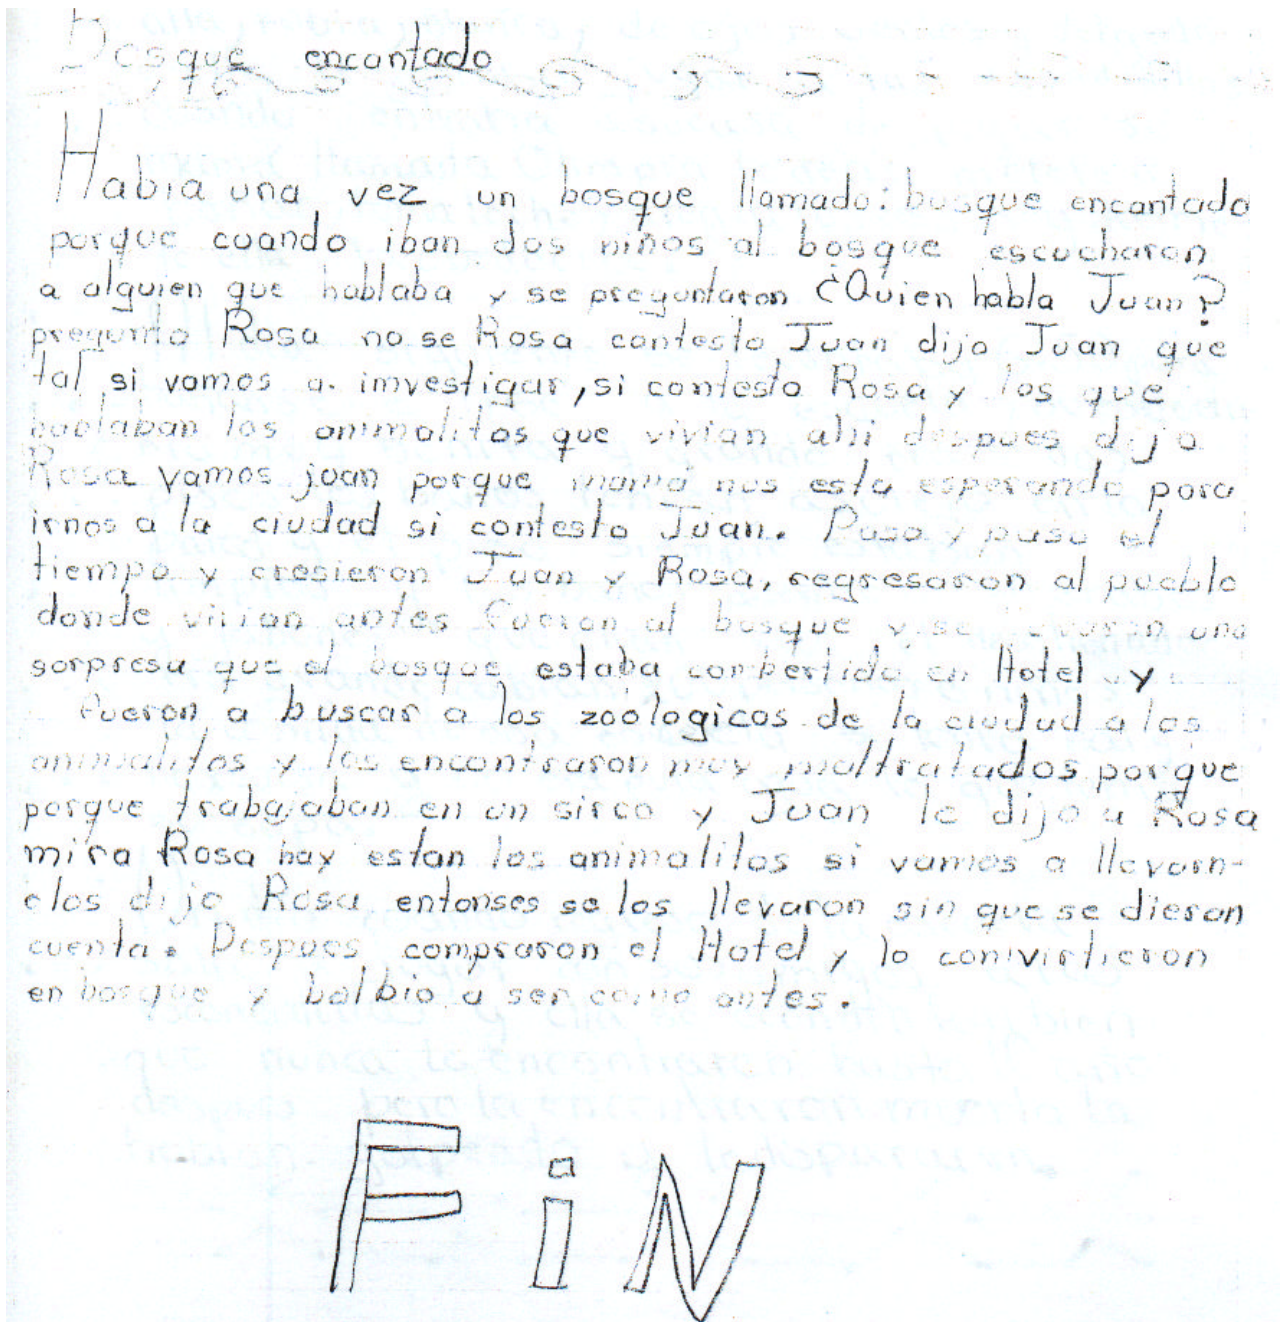 Bosque encantado
Habia una vez un bosque llamado: bosque encantado
porque cuando iban dos niños al bosque escucharon
a alguien que hablaba y se preguntaron ¿Quien habla Juan?
pregunto Rosa no se Rosa contesto Juan dijo Juan que
tal si vamos a investigar, si contesto Rosa y los que
hablaban los animalitos que vivian ahi despues dijo
Rosa vamos juan porque mama nos esta esperando para
irnos a la ciudad si contesto Juan. Paso y paso el
tiempo y cresieron Juan y Rosa, regresaron al pueblo
donde vivian antes fueron al bosque y se una
sorpresa que el bosque estaba combertido en Hotel y
fueron a buscar a los zoologicos de la ciudad a los
animalitos y los encontraron muy maltratados porque
porque trabajaban en un sirco y Juan le dijo a Rosa
mira Rosa hay estan los animalitos si vamos a llevarn-
olos dijo Rosa entonses se los llevaron sin que se dieran
cuenta. Despues compraron el Hotel y lo convirtieron
en bosque y balbio a ser como antes.
FiN